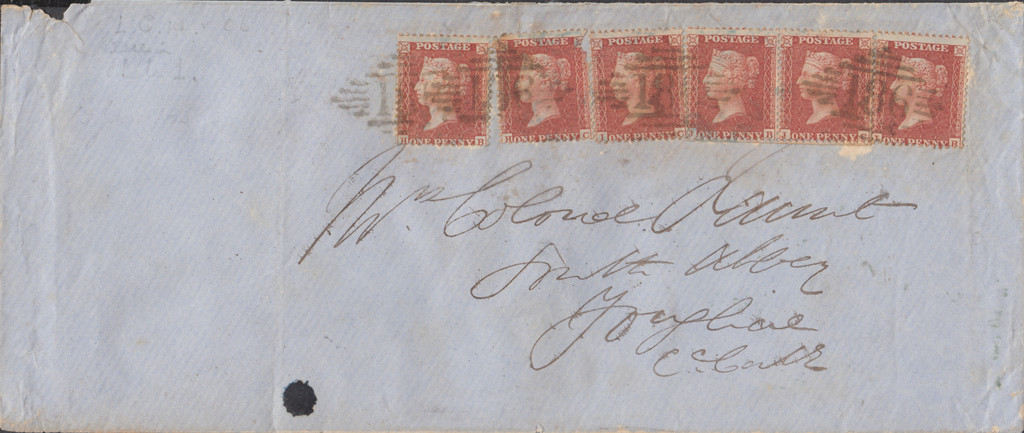 POSTAGE POSTAGE POSTAGE POSTAGE POSTAGE POSTAGE
H ONE PENNY B H ONE PENNY C I ONE PENNY C J ONE PENNY B J ONE PENNY C I ONE PENNY B
186 18 186
Mrs Colonel
South Abbey
Youghal
Co. Cork